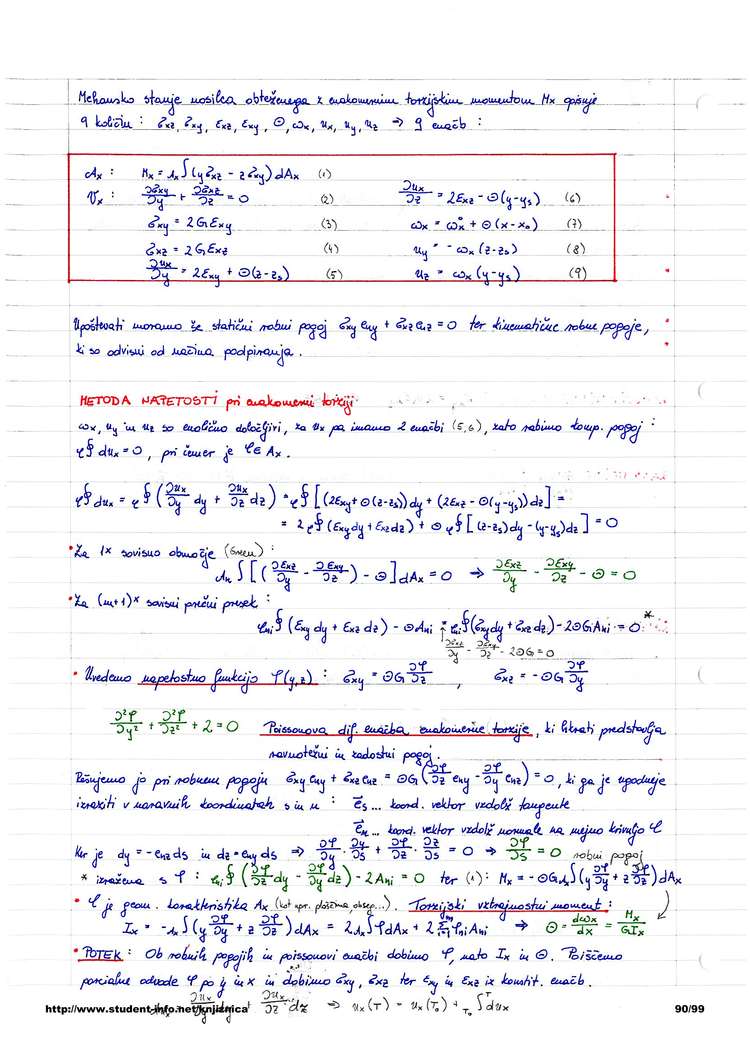 Mehansko stanje nosilca obteženega z enakomernim torzijskim momentom Mx opisuje
9 količin : σxz, σxy, εxz, εxy, Θ, ωx, ux, uy, uz ⇒ 9 enačb :
Ax : Mx = Ax∫(yσxz - zσxy)dAx (1)
Vx : ∂σxy/∂y + ∂σxz/∂z = 0 (2) ∂ux/∂z = 2εxz - Θ(y-ys) (6)
σxy = 2Gεxy (3) ωx = ωx° + Θ(x-x₀) (7)
σxz = 2Gεxz (4) uy = -ωx(z-zs) (8)
∂ux/∂y = 2εxy + Θ(z-zs) (5) uz = ωx(y-ys) (9)
Upoštevati moramo še statični robni pogoj σxy eny + σxz enz = 0 ter kinematične robne pogoje,
ki so odvisni od načina podpiranja.
METODA NAPETOSTI pri enakomerni torziji
ωx, uy in uz so enolično določljivi, za ux pa imamo 2 enačbi (5,6), zato rabimo komp. pogoj :
φ∮dux = 0, pri čemer je φ∈Ax.
φ∮dux = φ∮(∂ux/∂y dy + ∂ux/∂z dz) = φ∮[(2εxy+Θ(z-zs))dy + (2εxz - Θ(y-ys))dz] =
= 2φ∮(εxy dy + εxz dz) + Θφ∮[(z-zs)dy - (y-ys)dz] = 0
• Za 1x sovisno območje (Green) :
Ax∫[(∂εxz/∂y - ∂εxy/∂z) - Θ]dAx = 0 ⇒ ∂εxz/∂y - ∂εxy/∂z - Θ = 0
• Za (m+1)x sovisni prečni presek :
φni∮(εxy dy + εxz dz) - ΘAni = φni∮(σxy dy + σxz dz) - 2ΘGAni = 0 *
∂σxz/∂y - ∂σxy/∂z - 2ΘG = 0
• Uvedemo napetostno funkcijo φ(y,z) : σxy = ΘG ∂φ/∂z , σxz = -ΘG ∂φ/∂y
∂²φ/∂y² + ∂²φ/∂z² + 2 = 0 Poissonova dif. enačba enakomerne torzije, ki hkrati predstavlja
ravnotežni in zadostni pogoj.
Rešujemo jo pri robnem pogoju σxy eny + σxz enz = ΘG(∂φ/∂z eny - ∂φ/∂y enz) = 0, ki ga je ugodneje
izraziti v naravnih koordinatah s in n : e⃗s ... koord. vektor vzdolž tangente
e⃗n ... koord. vektor vzdolž normale na mejno krivuljo φ
Ker je dy = -enz ds in dz = eny ds ⇒ ∂φ/∂y · ∂y/∂s + ∂φ/∂z · ∂z/∂s = 0 ⇒ ∂φ/∂s = 0 robni pogoj
* izražena s φ : φni∮(∂φ/∂z dy - ∂φ/∂y dz) - 2Ani = 0 ter (1) : Mx = -ΘG Ax∫(y ∂φ/∂y + z ∂φ/∂z)dAx
• φ je geom. karakteristika Ax (kot npr. ploščina, obseg...). Torzijski vztrajnostni moment :
Ix = -Ax∫(y ∂φ/∂y + z ∂φ/∂z)dAx = 2Ax∫φdAx + 2 Σ φni Ani ⇒ Θ = dωx/dx = Mx/GIx
• POTEK : Ob robnih pogojih in poissonovi enačbi dobimo φ, nato Ix in Θ. Poiščemo
parcialne odvode φ po y in x in dobimo σxy, σxz ter εxy in εxz iz konstit. enačb.
dux = ∂ux/∂y dy + ∂ux/∂z dz ⇒ ux(T) = ux(T₀) + T₀∫T dux
http://www.student-info.net/knjiznica 90/99